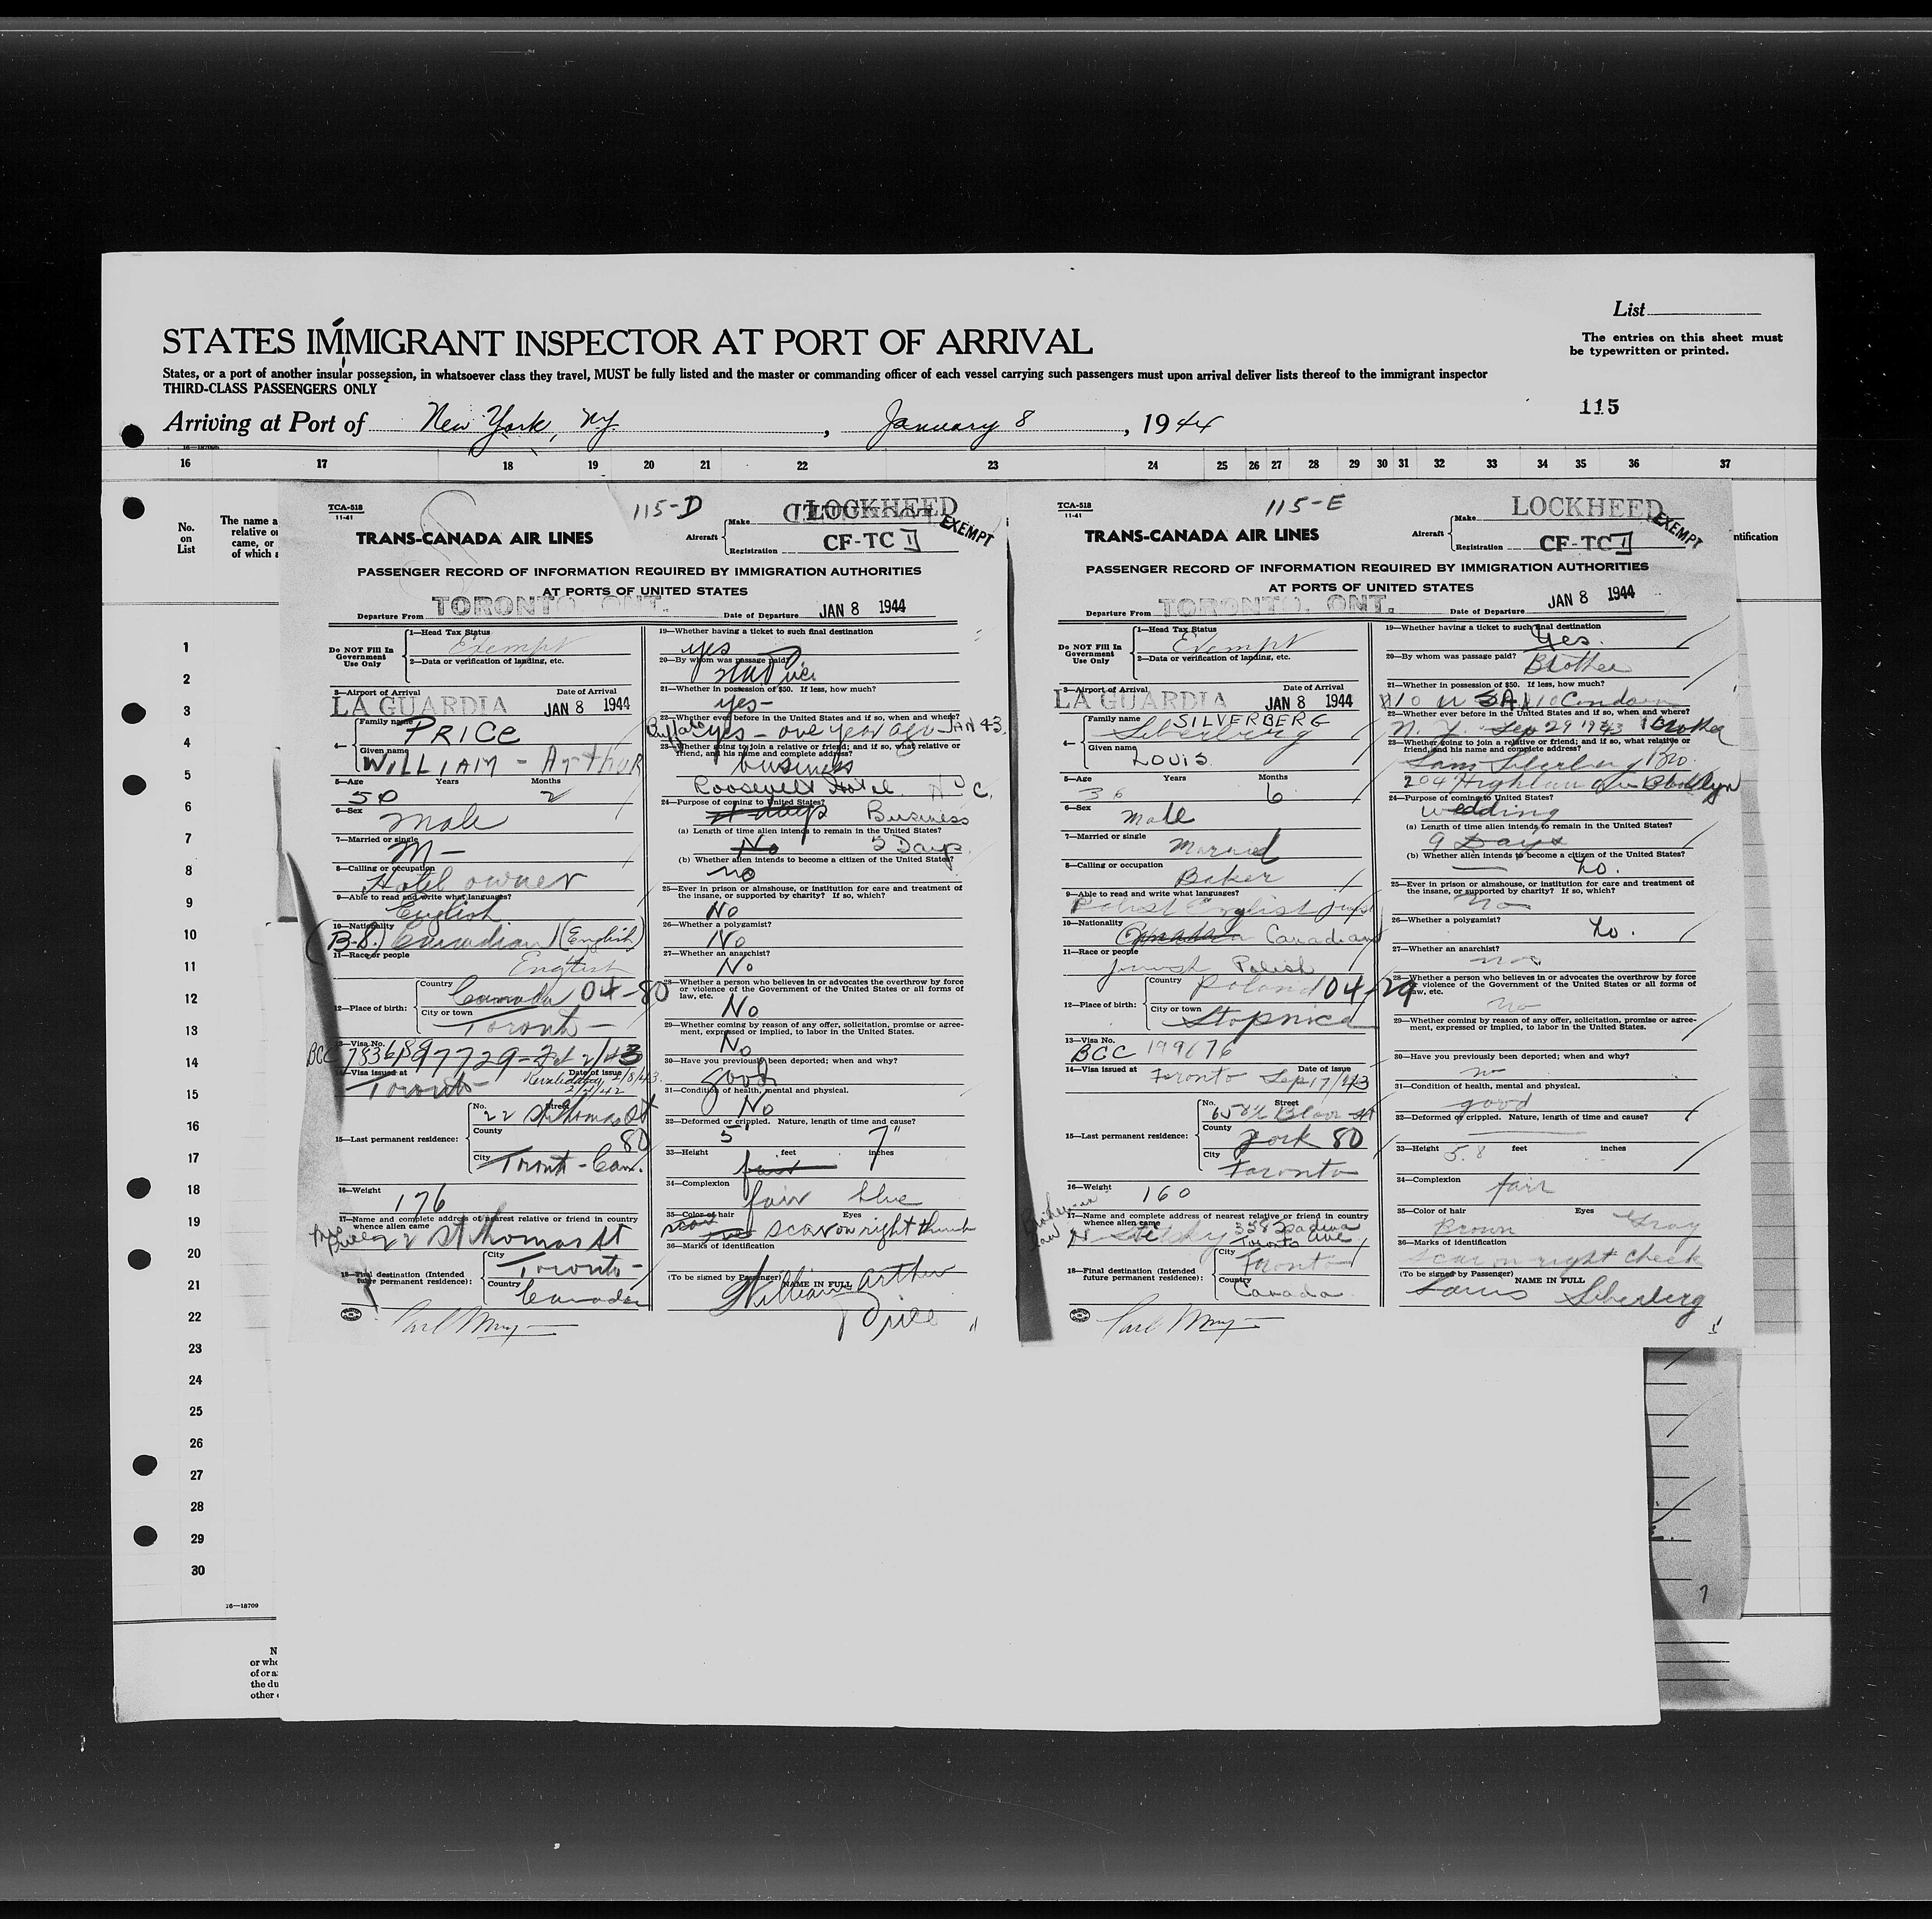 List
STATES IMMIGRANT INSPECTOR AT PORT OF ARRIVAL
The entries on this sheet must
be typewritten or printed.
States, or a port of another insular possession, in whatsoever class they travel, MUST be fully listed and the master or commanding officer of each vessel carrying such passengers must upon arrival deliver lists thereof to the immigrant inspector
THIRD-CLASS PASSENGERS ONLY
115
Arriving at Port of New York, NY, January 8, 1944
16 17 18 19 20 21 22 23 24 25 26 27 28 29 30 31 32 33 34 35 36 37
No.
on
List
The name a
relative or
came, or
of which a
ntification
1
2
3
4
5
6
7
8
9
10
11
12
13
14
15
16
17
18
19
20
21
22
23
24
25
26
27
28
29
30
16—18709
N
or who
of or a
the du
other
TCA-518
11-41
115-D
Aircraft
Make LOCKHEED
Registration CF-TC
EXEMPT
TRANS-CANADA AIR LINES
PASSENGER RECORD OF INFORMATION REQUIRED BY IMMIGRATION AUTHORITIES
AT PORTS OF UNITED STATES
Departure From TORONTO, ONT. Date of Departure JAN 8 1944
Do NOT Fill In
Government
Use Only
1—Head Tax Status
Exempt
2—Data or verification of landing, etc.
3—Airport of Arrival Date of Arrival
LA GUARDIA JAN 8 1944
4— Family name PRICE
Given name WILLIAM - Arthur
5—Age Years Months
50 2
6—Sex
Male
7—Married or single
M—
8—Calling or occupation
Hotel owner
9—Able to read and write what languages?
English
10—Nationality
(B-S.) Canadian (English)
11—Race or people
English
12—Place of birth: Country Canada 04-80
City or town Toronto
13—Visa No.
BCC 97729 - Feb 2/43
14—Visa issued at Date of issue
Toronto
15—Last permanent residence: No. Street
22 St Thomas St
County
80
City Toronto - Can.
16—Weight
176
17—Name and complete address of nearest relative or friend in country
whence alien came
22 St Thomas St
18—Final destination (Intended
future permanent residence):
City Toronto
Country Canada
19—Whether having a ticket to such final destination
yes
20—By whom was passage paid?
21—Whether in possession of $50. If less, how much?
yes-
22—Whether ever before in the United States and if so, when and where?
Buffalo yes - one year ago - JAN 43.
23—Whether going to join a relative or friend; and if so, what relative or
friend, and his name and complete address?
business
Roosevelt Hotel.
24—Purpose of coming to United States?
Business
(a) Length of time alien intends to remain in the United States?
No 5 Days
(b) Whether alien intends to become a citizen of the United States?
no
25—Ever in prison or almshouse, or institution for care and treatment of
the insane, or supported by charity? If so, which?
No
26—Whether a polygamist?
No
27—Whether an anarchist?
No
28—Whether a person who believes in or advocates the overthrow by force
or violence of the Government of the United States or all forms of
law, etc.
No
29—Whether coming by reason of any offer, solicitation, promise or agree-
ment, expressed or implied, to labor in the United States.
No
30—Have you previously been deported; when and why?
good
31—Condition of health, mental and physical.
No
32—Deformed or crippled. Nature, length of time and cause?
5' 7"
33—Height feet inches
34—Complexion
fair blue
35—Color of hair Eyes
scar on right thumb
36—Marks of identification
(To be signed by Passenger) NAME IN FULL
William Arthur
Price
TCA-518
11-41
115-E
Aircraft
Make LOCKHEED
Registration CF-TC
EXEMPT
TRANS-CANADA AIR LINES
PASSENGER RECORD OF INFORMATION REQUIRED BY IMMIGRATION AUTHORITIES
AT PORTS OF UNITED STATES
Departure From TORONTO, ONT. Date of Departure JAN 8 1944
Do NOT Fill In
Government
Use Only
1—Head Tax Status
Exempt
2—Data or verification of landing, etc.
3—Airport of Arrival Date of Arrival
LA GUARDIA JAN 8 1944
4— Family name SILVERBERG
Silverberg
Given name
Louis.
5—Age Years Months
36 6
6—Sex
Male
7—Married or single
Married
8—Calling or occupation
Baker
9—Able to read and write what languages?
Polish English
10—Nationality
Canadian
11—Race or people
Jewish Polish
12—Place of birth: Country Poland 04-29
City or town Stopnica
13—Visa No.
BCC 199676
14—Visa issued at Date of issue
Toronto Sep 17/43
15—Last permanent residence: No. Street
Bloor St
County
York 80
City
Toronto
16—Weight 160
17—Name and complete address of nearest relative or friend in country
whence alien came
358 Spadina
Toronto Ave
18—Final destination (Intended
future permanent residence):
City Toronto
Country
Canada
19—Whether having a ticket to such final destination
Yes.
20—By whom was passage paid? Brother
21—Whether in possession of $50. If less, how much?
22—Whether ever before in the United States and if so, when and where?
N. Y. Sep 29 1943 Brother
23—Whether going to join a relative or friend; and if so, what relative or
friend, and his name and complete address?
Sam Silverberg Bro.
204 Brooklyn
24—Purpose of coming to United States?
wedding
(a) Length of time alien intends to remain in the United States?
9 Days
(b) Whether alien intends to become a citizen of the United States?
No.
25—Ever in prison or almshouse, or institution for care and treatment of
the insane, or supported by charity? If so, which?
no
26—Whether a polygamist?
No.
27—Whether an anarchist?
no
28—Whether a person who believes in or advocates the overthrow by force
or violence of the Government of the United States or all forms of
law, etc.
no
29—Whether coming by reason of any offer, solicitation, promise or agree-
ment, expressed or implied, to labor in the United States.
30—Have you previously been deported; when and why?
no
31—Condition of health, mental and physical.
good
32—Deformed or crippled. Nature, length of time and cause?
33—Height 5.8 feet inches
34—Complexion
fair
35—Color of hair Eyes
Brown Gray
36—Marks of identification
scar on right cheek
(To be signed by Passenger) NAME IN FULL
Louis Silverberg